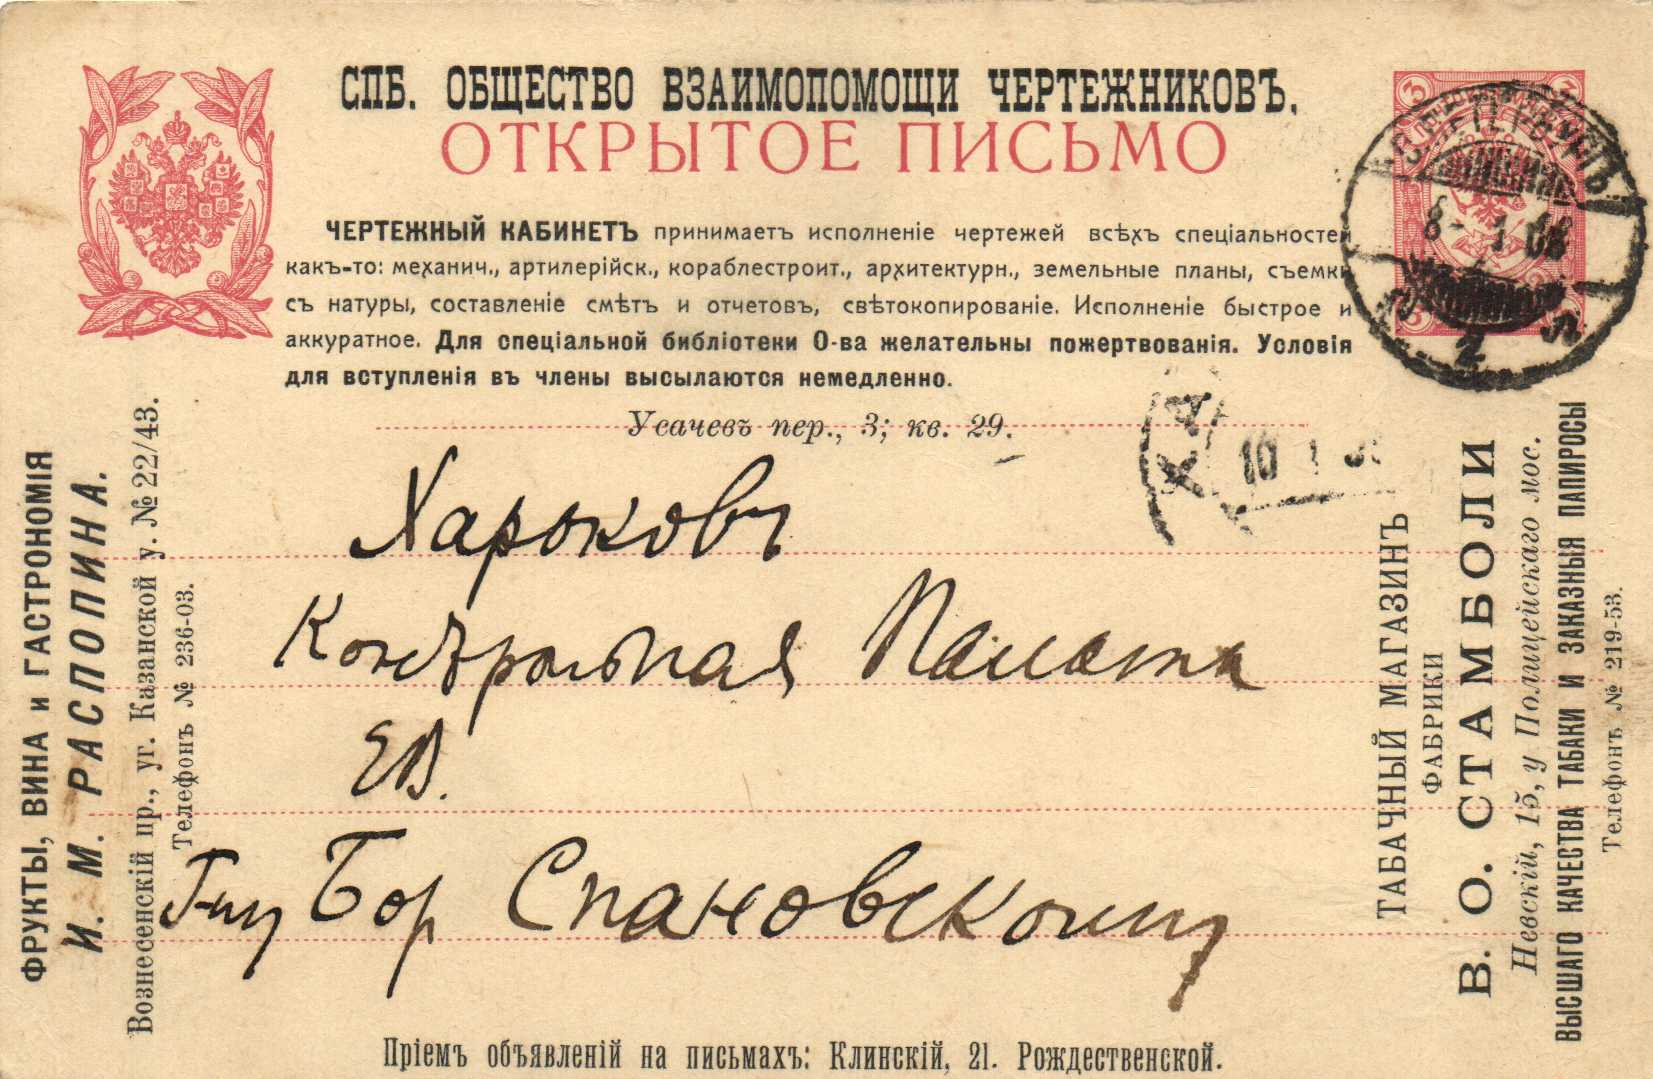 СПБ. ОБЩЕСТВО ВЗАИМОПОМОЩИ ЧЕРТЕЖНИКОВЪ.
ОТКРЫТОЕ ПИСЬМО
ЧЕРТЕЖНЫЙ КАБИНЕТЪ принимаетъ исполненіе чертежей всѣхъ спеціальностей
какъ-то: механич., артилерійск., кораблестроит., архитектурн., земельные планы, съемки
съ натуры, составленіе смѣтъ и отчетовъ, свѣтокопированіе. Исполненіе быстрое и
аккуратное. Для спеціальной библіотеки О-ва желательны пожертвованія. Условія
для вступленія въ члены высылаются немедленно.
Усачевъ пер., 3; кв. 29.
3 3
8- 1 08
2
ХА
10 1
Харьковъ
Контрольная Палата
ЕВ.
Г-ну Бор Спановскому
ФРУКТЫ, ВИНА и ГАСТРОНОМІЯ
И. М. РАСПОПИНА.
Вознесенскій пр., уг. Казанской у. № 22/43.
Телефонъ № 236-03.
ТАБАЧНЫЙ МАГАЗИНЪ
ФАБРИКИ
В. О. СТАМБОЛИ
Невскій, 15, у Полицейскаго мос.
ВЫСШАГО КАЧЕСТВА ТАБАКИ И ЗАКАЗНЫЯ ПАПИРОСЫ
Телефонъ № 219-53.
Пріемъ объявленій на письмахъ: Клинскій, 21. Рождественской.